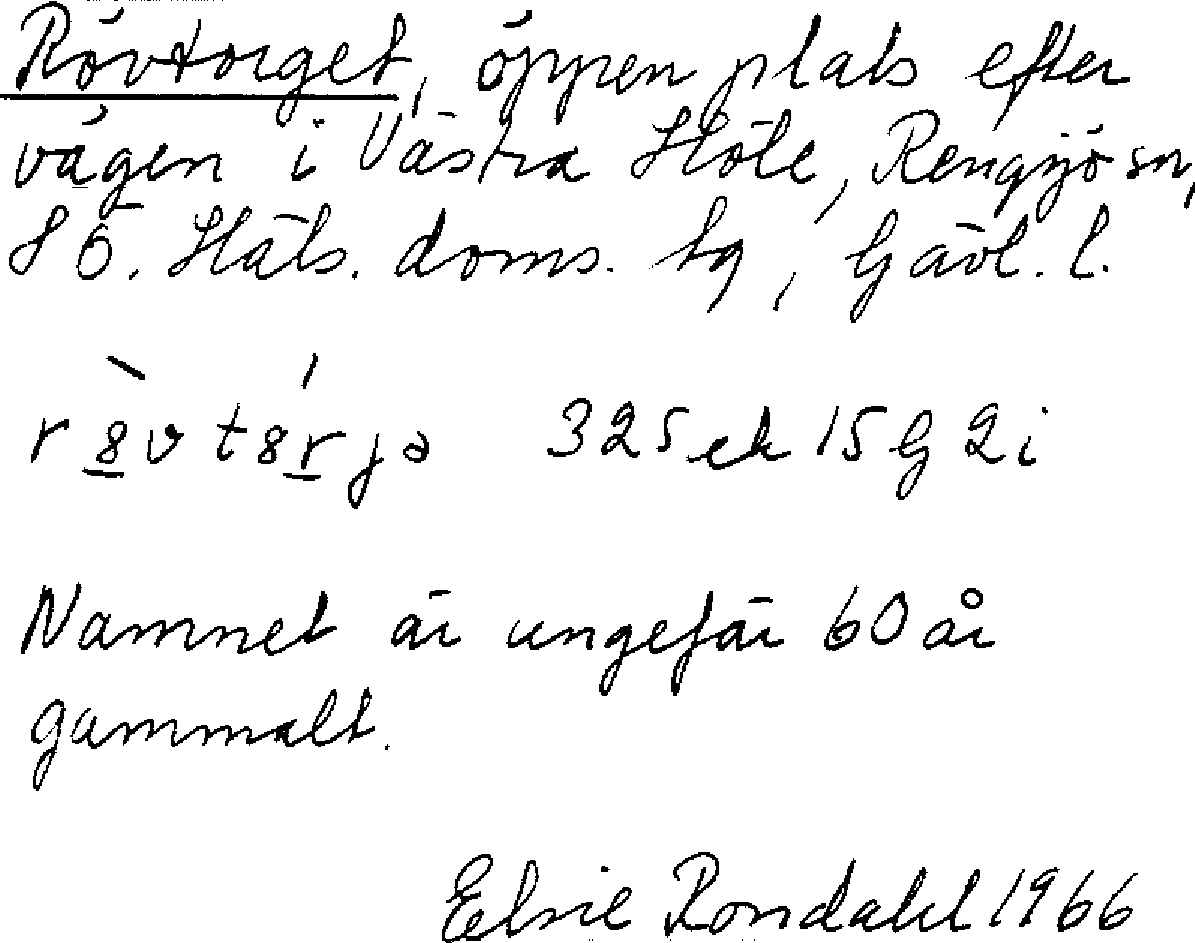 Rövtorget, öppen plats efter
vägen i Västra Höle, Rengsjö sn,
S Ö. Häls. doms. tg, Gävl. l.
r8̲̀vt8ŕ̲jə 325ek 15G2i
Namnet är ungefär 60 år
gammalt.
Elsie Rondahl 1966